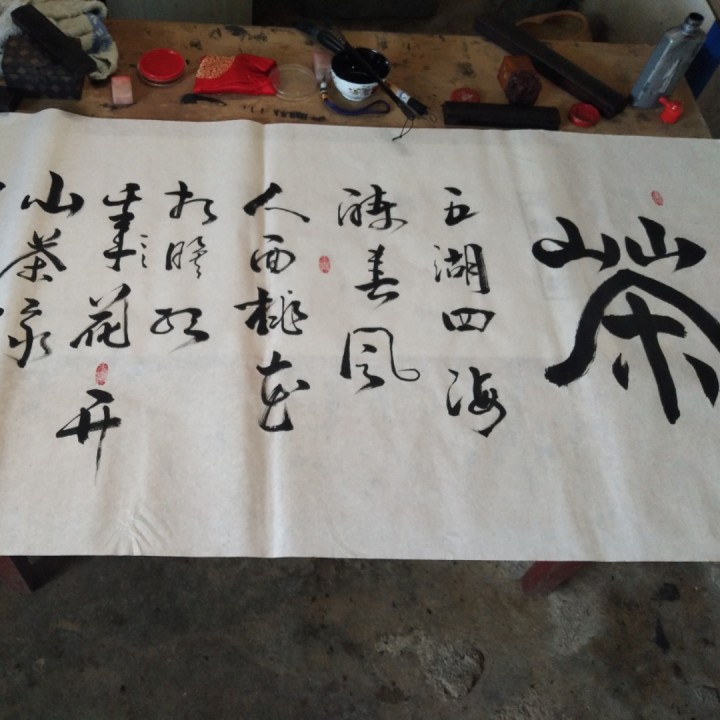 茶
五湖四海
春风
人面桃花
相映红
年々花开
山茶